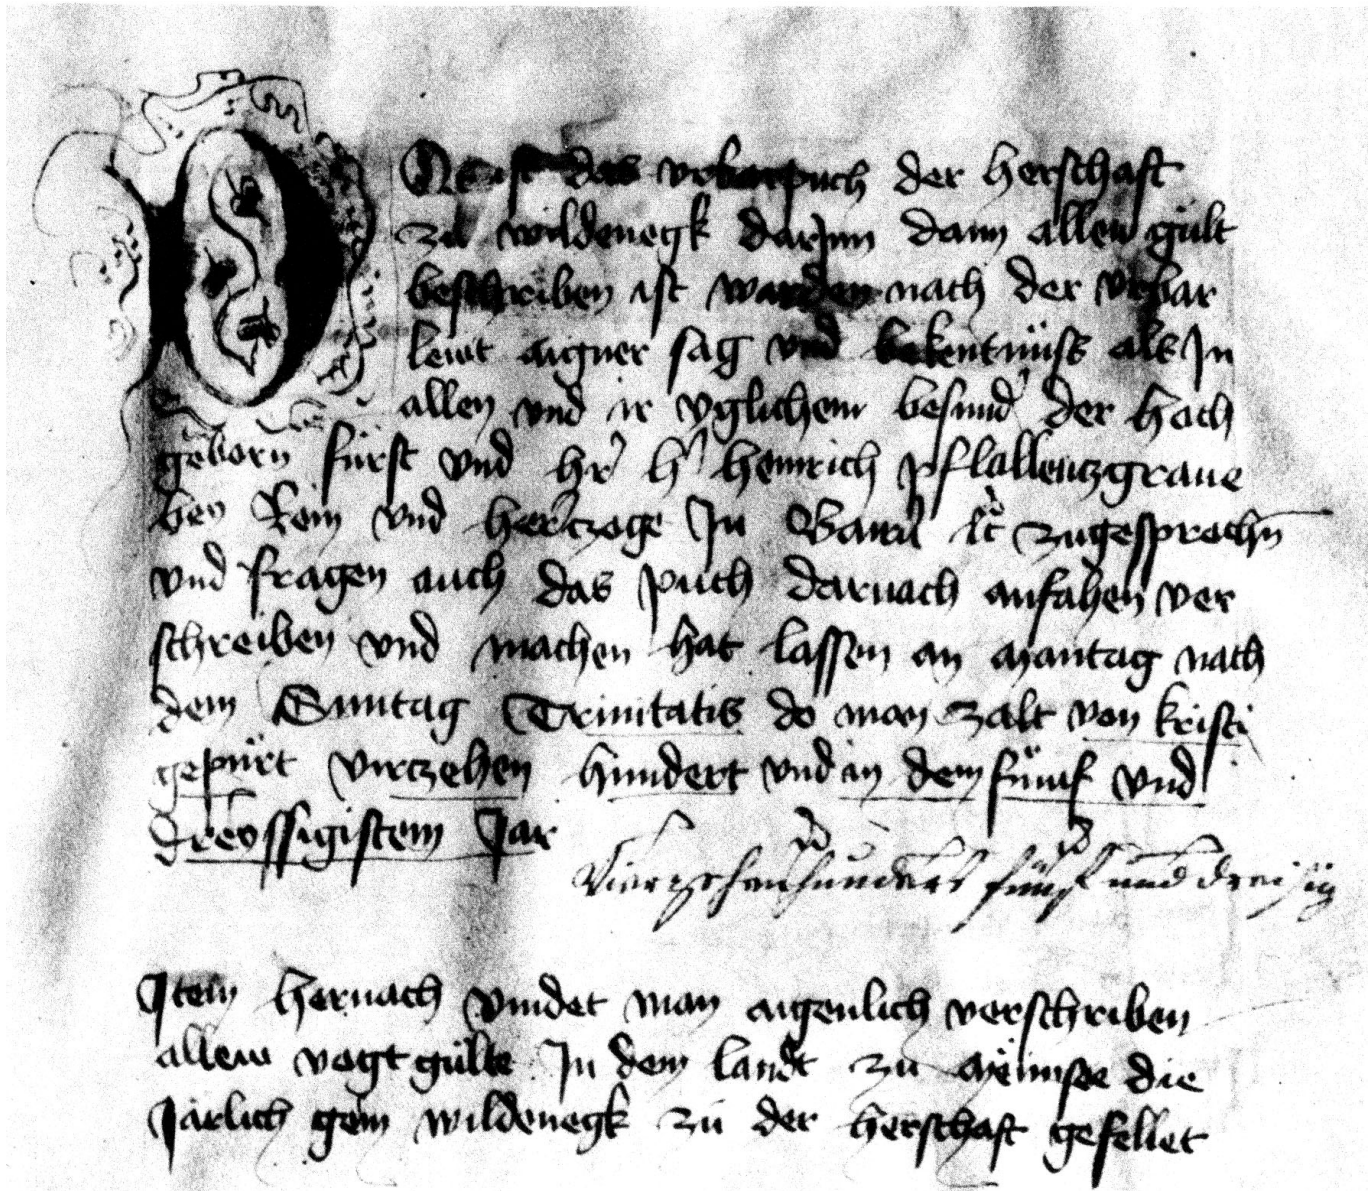 Das ist das vrbarpuch der herschafft
zu wildenegk darjnn dann allew gült
beschriben ist warden nach der vrbar
lewt aigner sag vnd bekentnüss als In
allen vnd ir yglichem besund der hoch
geborn fürst vnd hr h heinrich pfallentzgraue
bey Rein vnd hertzoge In Bairn etc zugesprochn
vnd fragen auch das puch darnach anfahen ver
schreiben vnd machen hat lassen an mantag nach
dem Suntag Trinitatis do man zalt von kristi
gepürt virczehen hundert vnd in dem fünf vnd
dreyssigistem Jar
Vierzehenhundert fünf und dreisig
Item hernach vindet man aigenlich verschriben
allew vogt gülte In dem landt zu Mënnsee die
Järlich gein wildenegk zu der herschaft gefellet